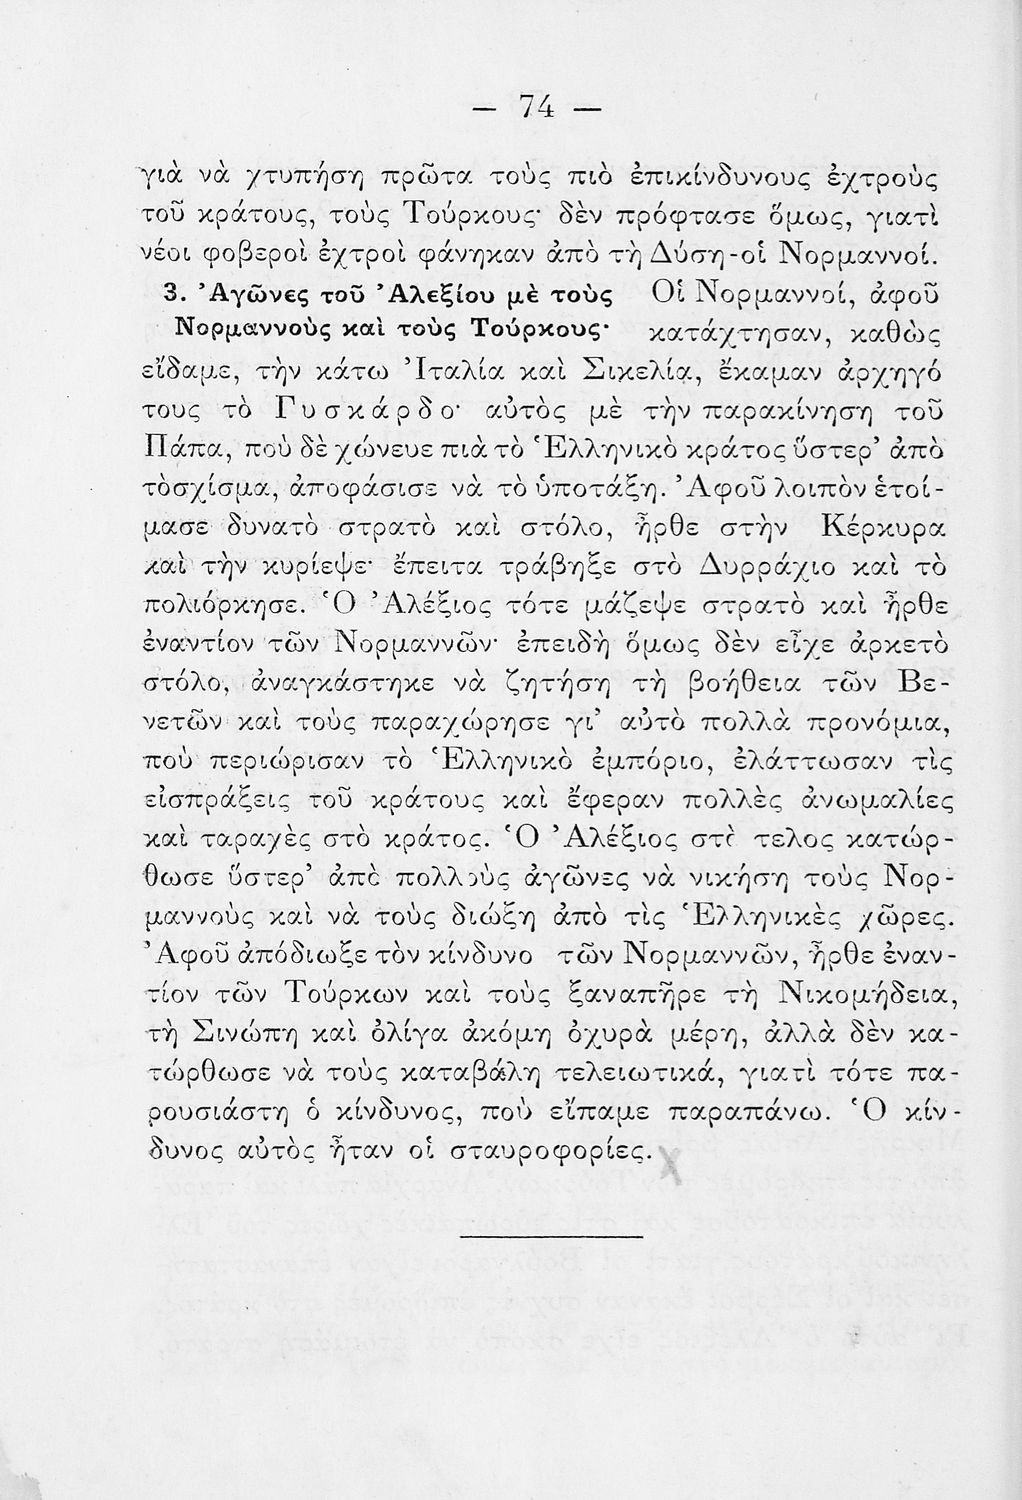 — 74 —
γιὰ νὰ χτυπήσῃ πρῶτα τοὺς πιὸ ἐπικίνδυνους ἐχτροὺς
τοῦ κράτους, τοὺς Τούρκους· δὲν πρόφτασε ὅμως, γιατὶ
νέοι φοβεροὶ ἐχτροὶ φάνηκαν ἀπὸ τὴ Δύση-οἱ Νορμαννοί.
3. Ἀγῶνες τοῦ Ἀλεξίου μὲ τοὺς Οἱ Νορμαννοί, ἀφοῦ
Νορμαννοὺς καὶ τοὺς Τούρκους· κατάχτησαν, καθὼς
εἴδαμε, τὴν κάτω Ἰταλία καὶ Σικελία, ἔκαμαν ἀρχηγό
τους τὸ Γυσκάρδο· αὐτὸς μὲ τὴν παρακίνηση τοῦ
Πάπα, ποὺ δὲ χώνευε πιὰ τὸ Ἑλληνικὸ κράτος ὕστερ’ ἀπὸ
τὸσχίσμα, ἀποφάσισε νὰ τὸ ὑποτάξῃ. Ἀφοῦ λοιπὸν ἑτοί-
μασε δυνατὸ στρατὸ καὶ στόλο, ἦρθε στὴν Κέρκυρα
καὶ τὴν κυρίεψε· ἔπειτα τράβηξε στὸ Δυρράχιο καὶ τὸ
πολιόρκησε. Ὁ Ἀλέξιος τότε μάζεψε στρατὸ καὶ ἦρθε
ἐναντίον τῶν Νορμαννῶν· ἐπειδὴ ὅμως δὲν εἶχε ἀρκετὸ
στόλο, ἀναγκάστηκε νὰ ζητήσῃ τὴ βοήθεια τῶν Βε-
νετῶν καὶ τοὺς παραχώρησε γι’ αὐτὸ πολλὰ προνόμια,
ποὺ περιώρισαν τὸ Ἑλληνικὸ ἐμπόριο, ἐλάττωσαν τὶς
εἰσπράξεις τοῦ κράτους καὶ ἔφεραν πολλὲς ἀνωμαλίες
καὶ ταραχὲς στὸ κράτος. Ὁ Ἀλέξιος στὸ τελος κατώρ-
θωσε ὕστερ’ ἀπὸ πολλοὺς ἀγῶνες νὰ νικήσῃ τοὺς Νορ-
μαννοὺς καὶ νὰ τοὺς διώξῃ ἀπὸ τὶς Ἑλληνικὲς χῶρες.
Ἀφοῦ ἀπόδιωξε τὸν κίνδυνο τῶν Νορμαννῶν, ἦρθε ἐναν-
τίον τῶν Τούρκων καὶ τοὺς ξαναπῆρε τὴ Νικομήδεια,
τὴ Σινώπη καὶ ὀλίγα ἀκόμη ὀχυρὰ μέρη, ἀλλὰ δὲν κα-
τώρθωσε νὰ τοὺς καταβάλῃ τελειωτικά, γιατὶ τότε πα-
ρουσιάστη ὁ κίνδυνος, ποὺ εἴπαμε παραπάνω. Ὁ κίν-
δυνος αὐτὸς ἦταν οἱ σταυροφορίες.